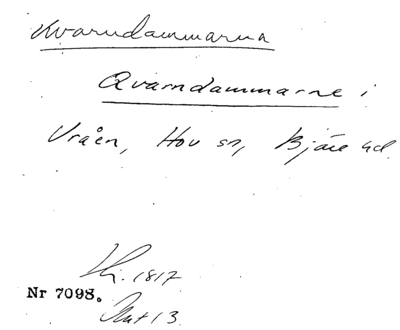 Kvarndammarna
Qvarndammarne i
Vråen, Hov sn, Bjäre hd.
1817
Nr 7098.
13